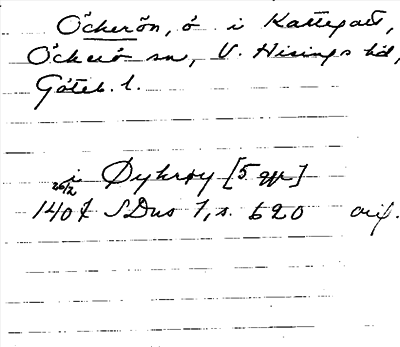 Öckerön, ö i Kattegatt,
Öckerö sn, V. Hisings hd,
Göteb. l.
i Øykroy [5 ggr]
26/2
1407 SDns 1, s. 620 orig.